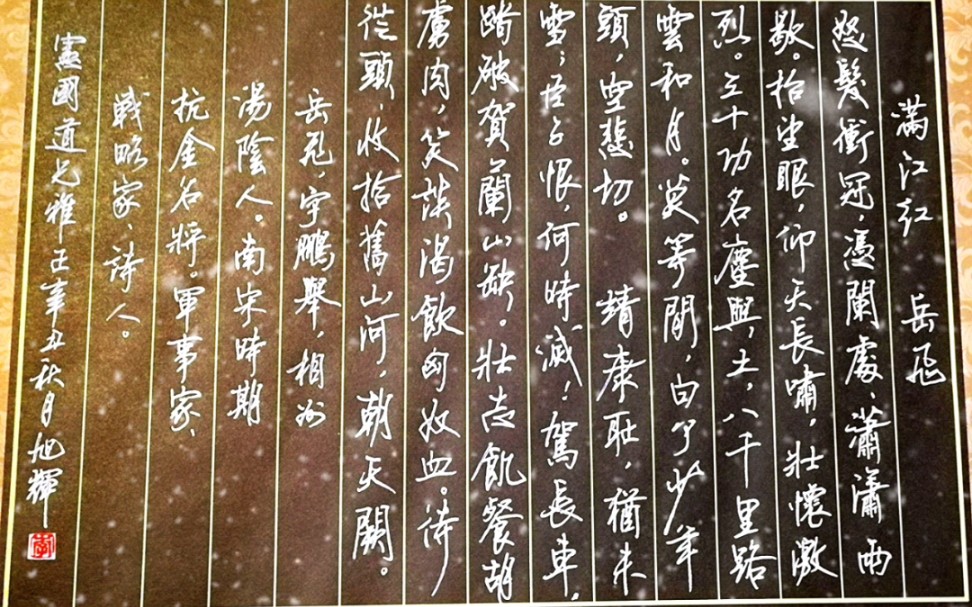 滿江紅　岳飛
怒髮衝冠，憑闌處，瀟瀟雨
歇。抬望眼，仰天長嘯，壯懷激
烈。三十功名塵與土，八千里路
雲和月。莫等閒，白了少年
頭，空悲切。　靖康恥，猶未
雪；臣子恨，何時滅！駕長車，
踏破賀蘭山缺。壯志飢餐胡
虜肉，笑談渴飲匈奴血。待
從頭，收拾舊山河，朝天闕。
岳飛，字鵬舉，相州
湯陰人。南宋時期
抗金名將。軍事家、
戰略家、詩人。
憲國道兄雅正辛丑秋月旭輝
李